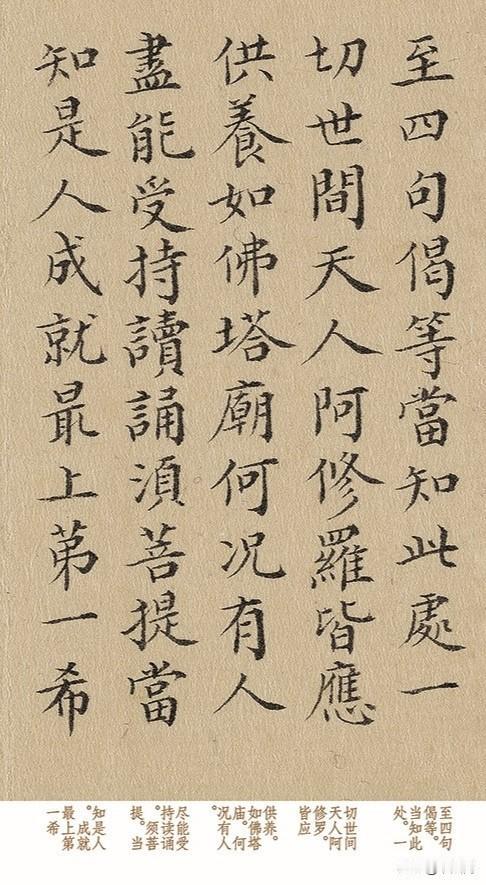 至四句偈等當知此處一
切世間天人阿修羅皆應
供養如佛塔廟何况有人
盡能受持讀誦湏菩提當
知是人成就最上苐一希
至四句
偈等。
当知此
处。一
切世间
天人阿
修罗。
皆应
供养。
如佛塔
庙。何
况有人
尽能受
持读诵
。须菩
提。当
知是人
。成就
最上第
一希